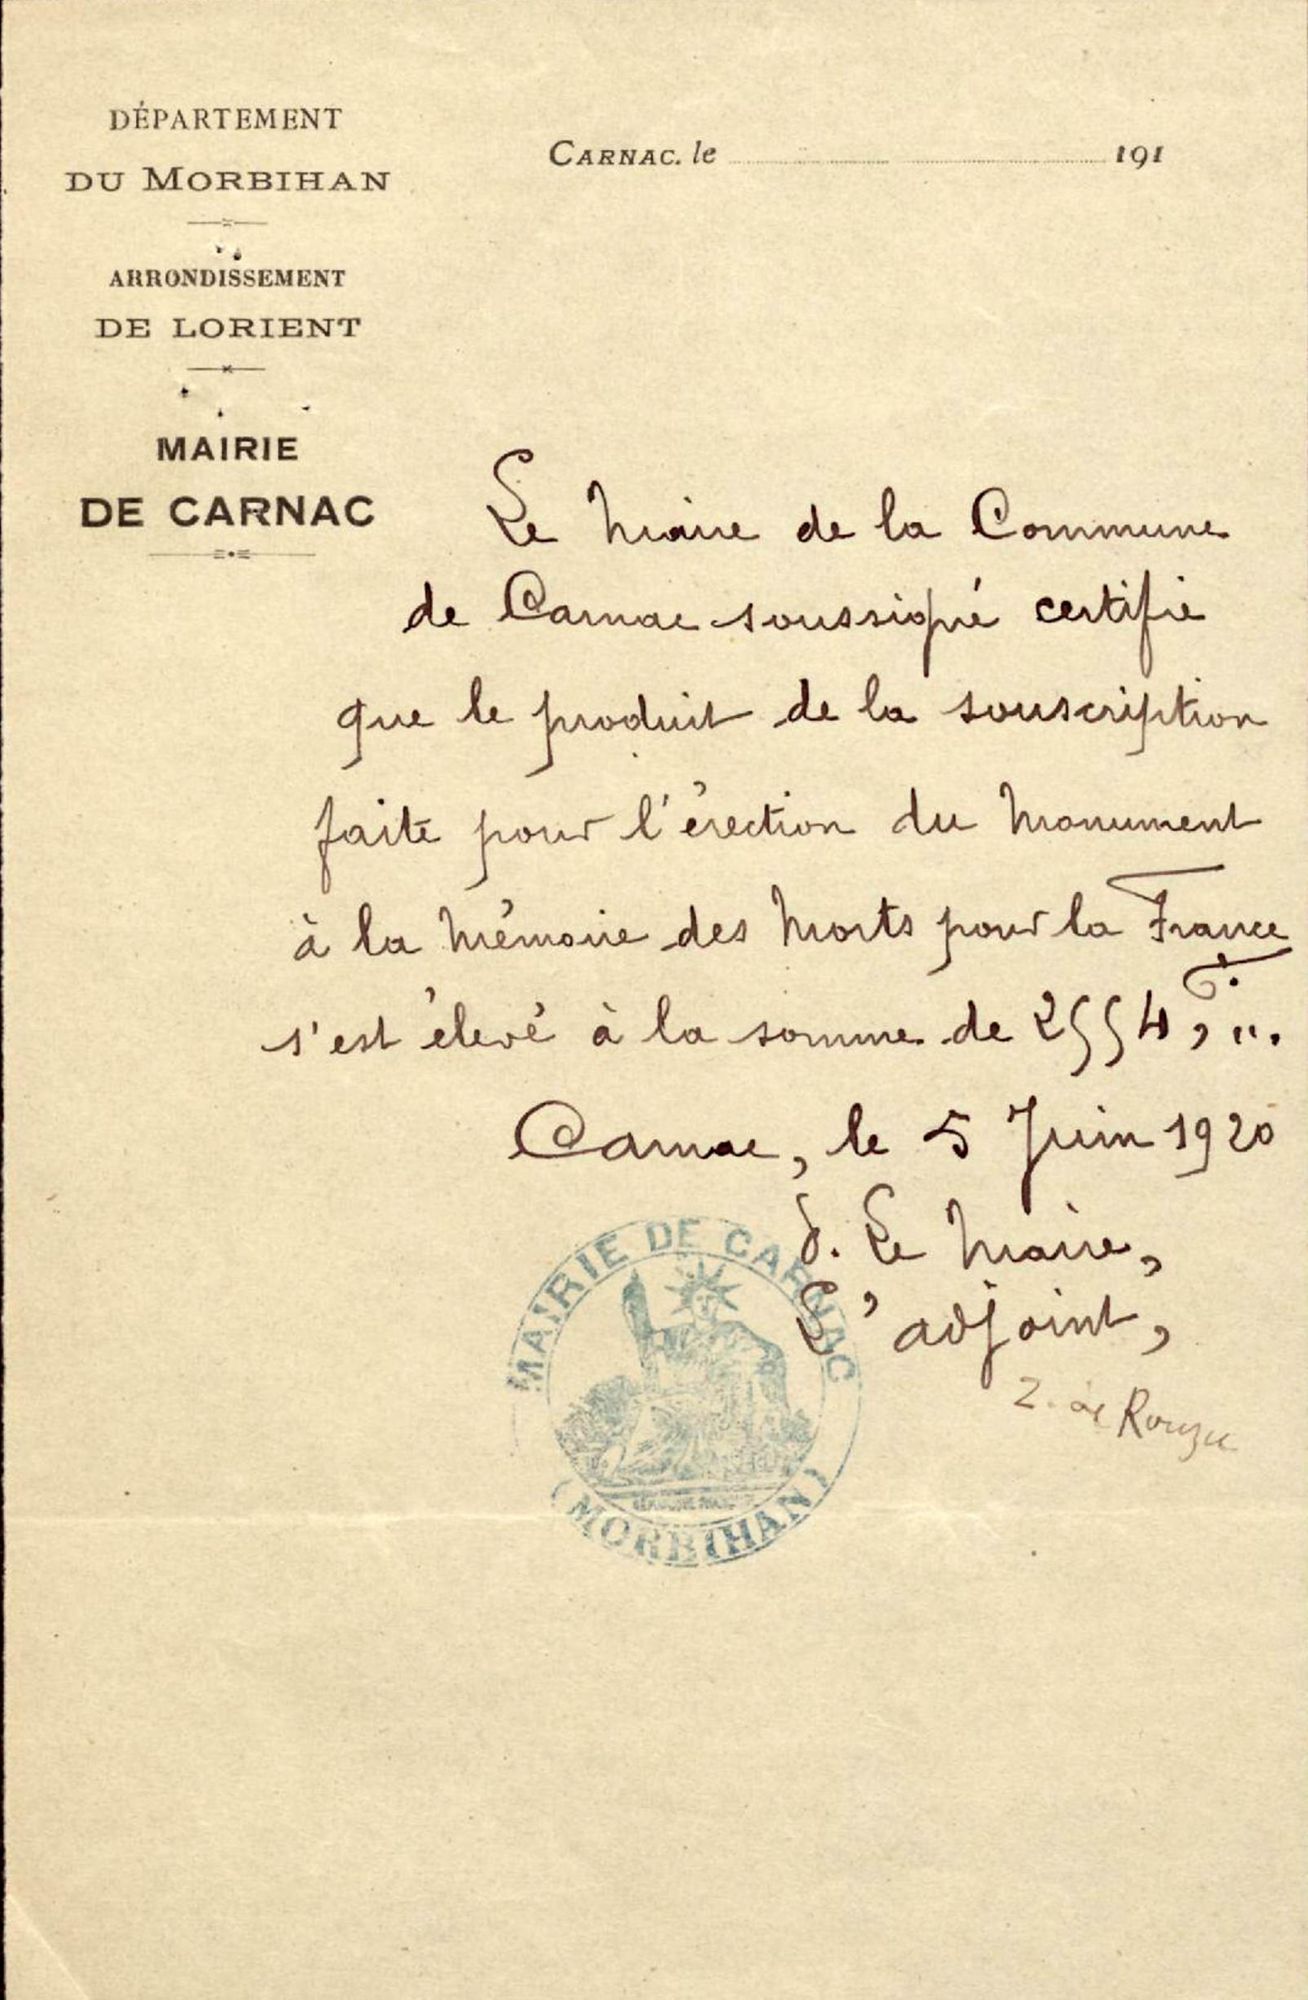 DÉPARTEMENT
DU MORBIHAN
ARRONDISSEMENT
DE LORIENT
MAIRIE
DE CARNAC
CARNAC. le 191
Le Maire de la Commune
de Carnac soussigné certifie
que le produit de la souscription
faite pour l'érection du Monument
à la Mémoire des Morts pour la France
s'est élevé à la somme de 2554 F, ".
Carnac, le 5 Juin 1920
Le Maire,
L'adjoint,
MAIRIE DE CARNAC
(MORBIHAN)